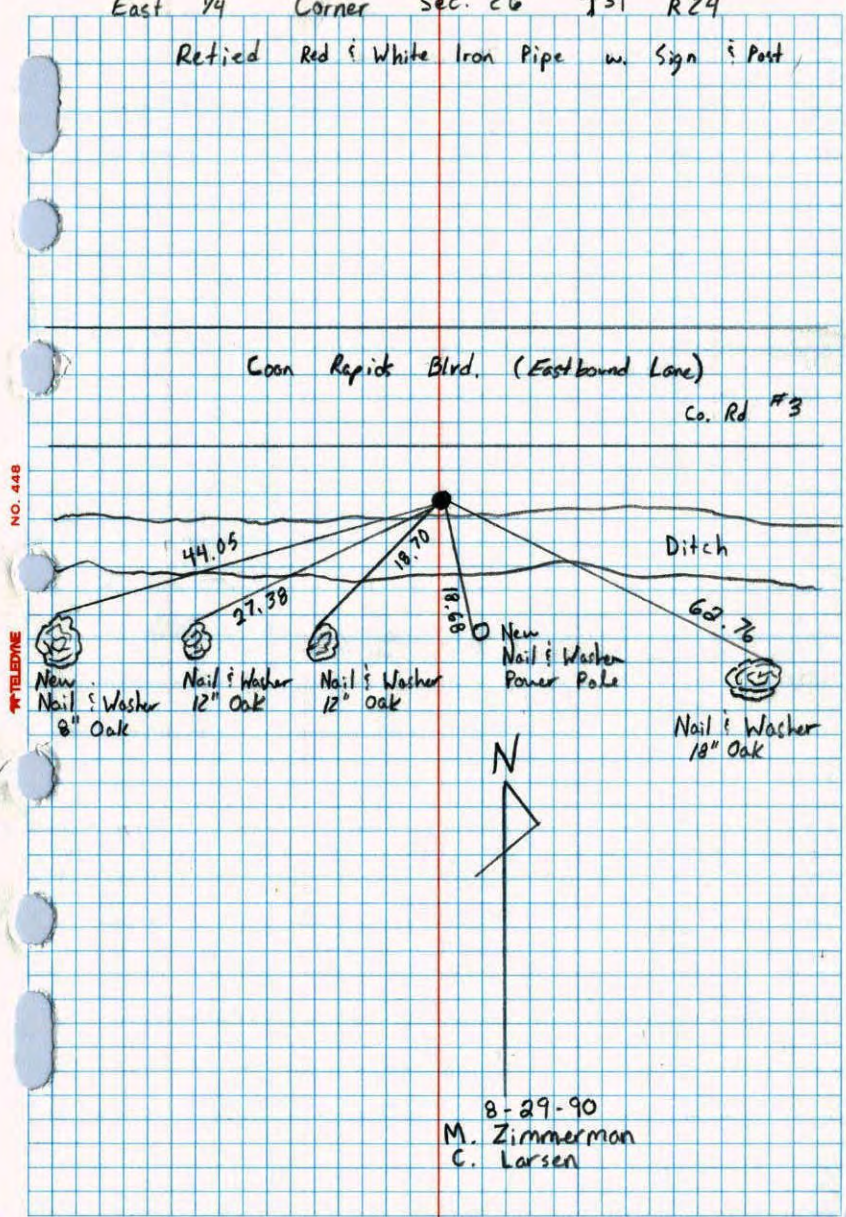 East 1/4 Corner Sec. 26 T31 R24
Retied Red & White Iron Pipe w. Sign & Post
Coon Rapids Blvd. (Eastbound Lane)
Co. Rd #3
NO. 448
TELEDYNE
Ditch
44.05
27.38
18.70
18.68
62.76
New
Nail & Washer
8" Oak
Nail & Washer
12" Oak
Nail & Washer
12" Oak
New
Nail & Washer
Power Pole
Nail & Washer
18" Oak
N
8-29-90
M. Zimmerman
C. Larsen